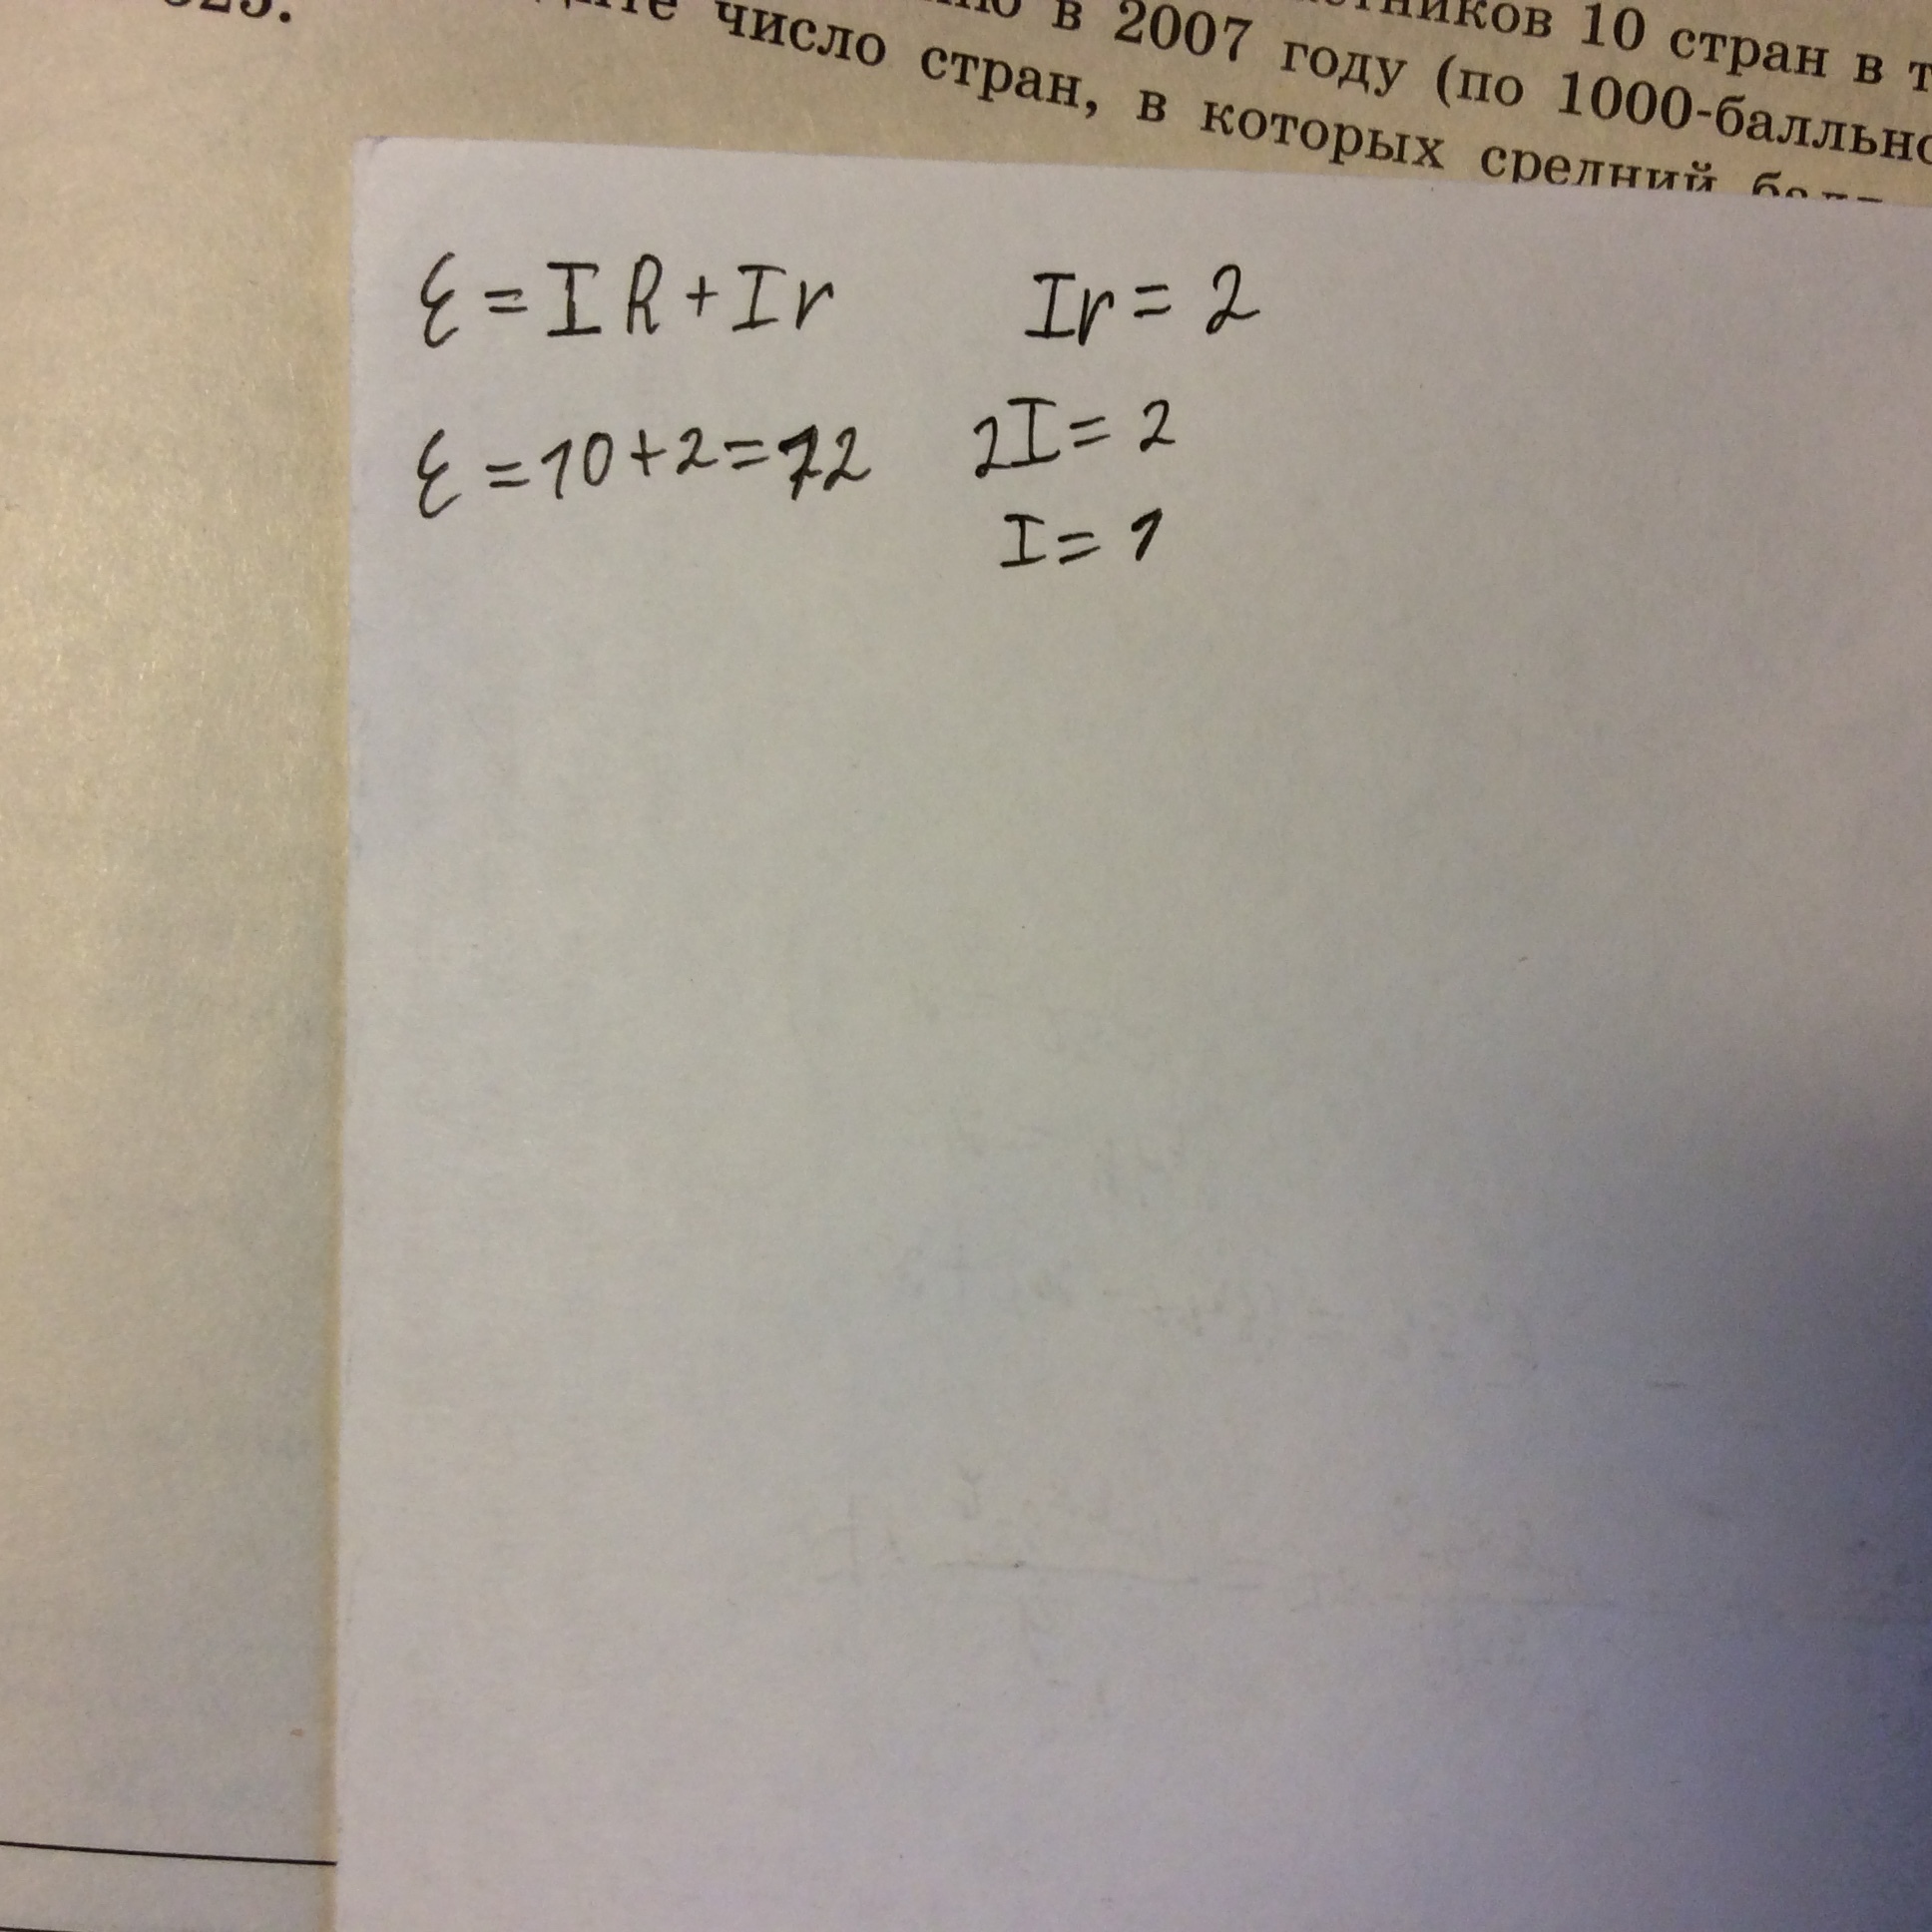 10 стран в
в 2007 году (по 1000-балльно
число стран, в которых средний
ε = IR + Ir
Ir = 2
ε = 10 + 2 = 12
2I = 2
I = 1